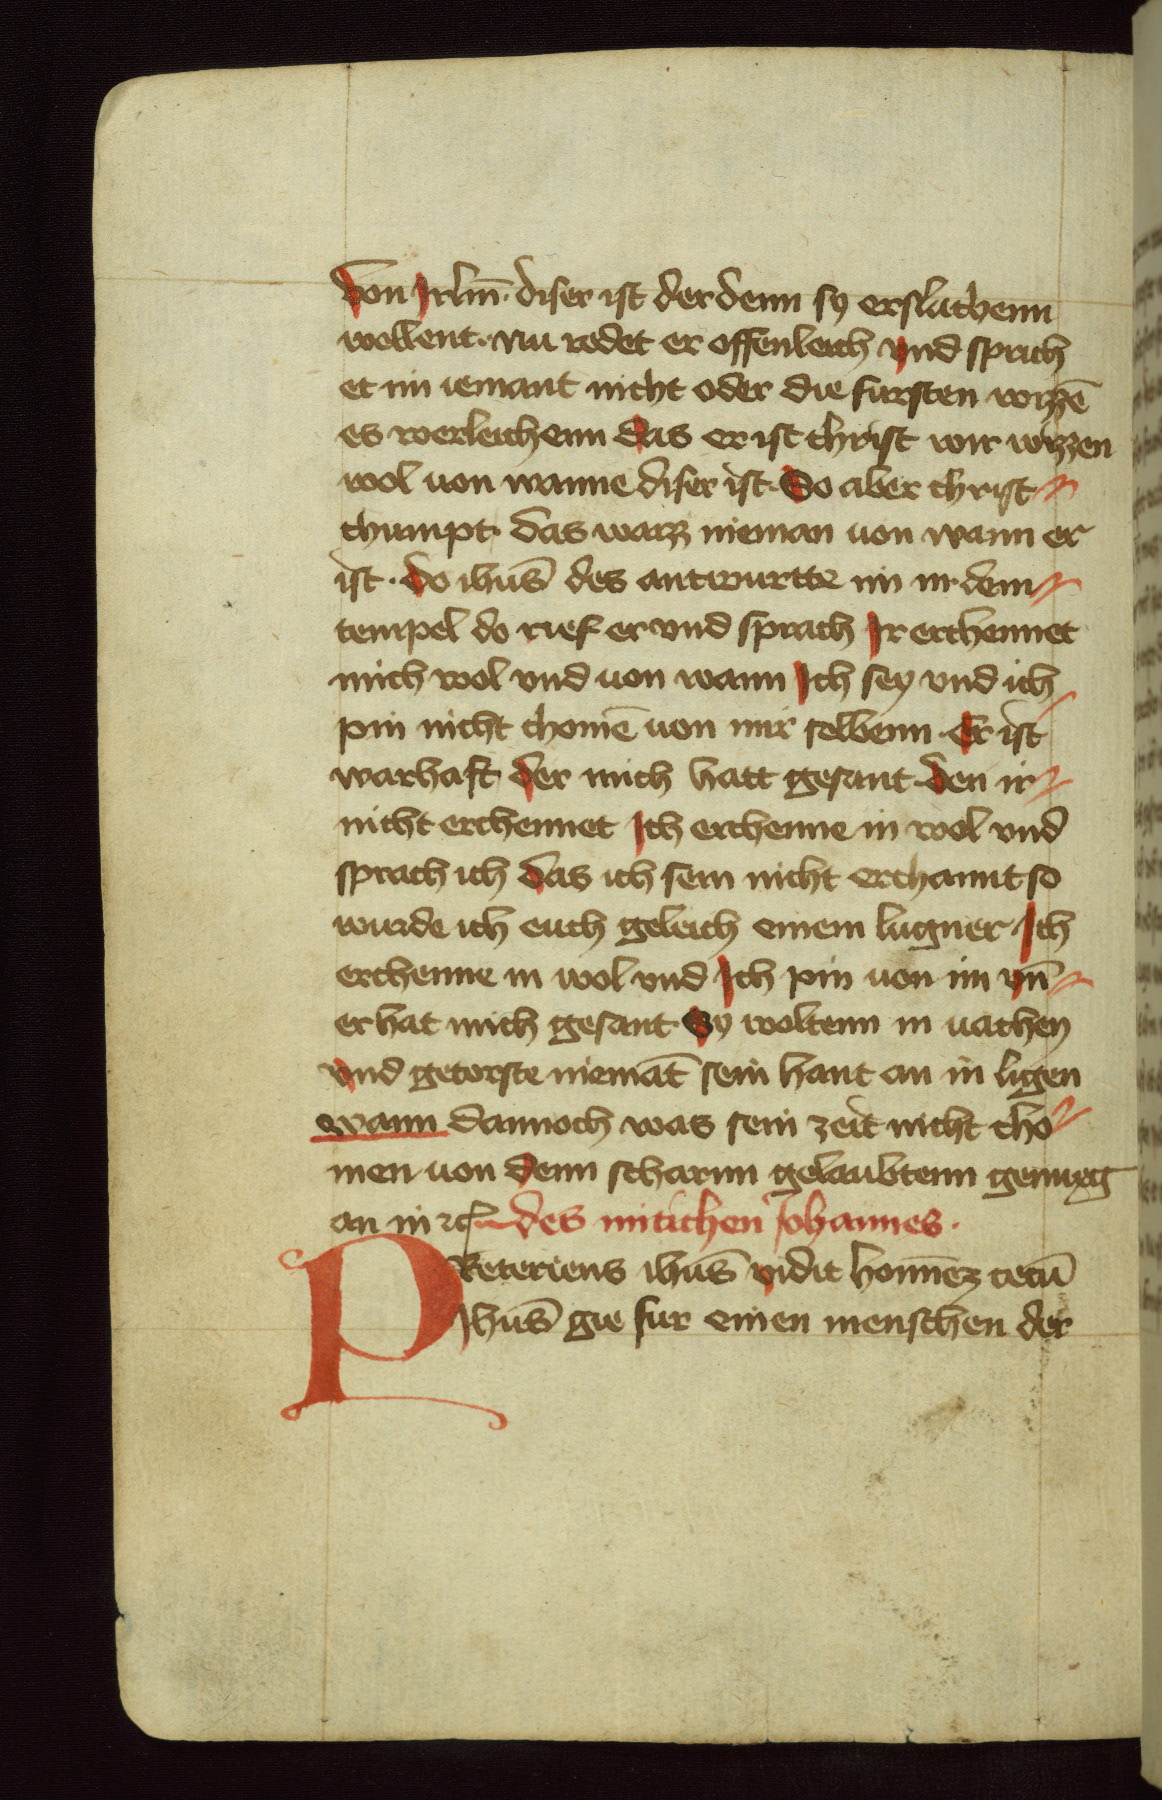 von Jrlm̄. diser ist der denn sy erslachenn
wollent. Nu redet er offenleich vnd sprach
et im iemant nicht oder die fursten wizzē
es werleichenn das er ist christ wir wizzen
wol uon wanne diser ist. So aber christ
chumpt. das waizz nieman uon wann er
ist. do ihus̄ des antwurtte im in dem
tempel do rief er vnd sprach Jr erchennet
mich wol vnd uon wann Jch sey vnd ich
pin nicht chomē uon mir selbenn. Er ist
warhaft der mich hatt gesant. den ir
nicht erchennet Jch erchenne in wol vnd
sprach ich das ich sein nicht erchannt so
wurde ich euch geleich einem lugner Jch
erchenne in wol vnd Jch pin uon im vn̄
er hat mich gesant. Sy woltenn in uachen
vnd getorste niemāt sein hant an in legen
wann dannoch was sein zeit nicht cho
men uon denn scharnn gelaubtenn genueg
an in ꝛc des mitichen Johannes.
PReteriens ihus̄ vidit homīez cecū
Jhus̄ gie fur einen menschen der